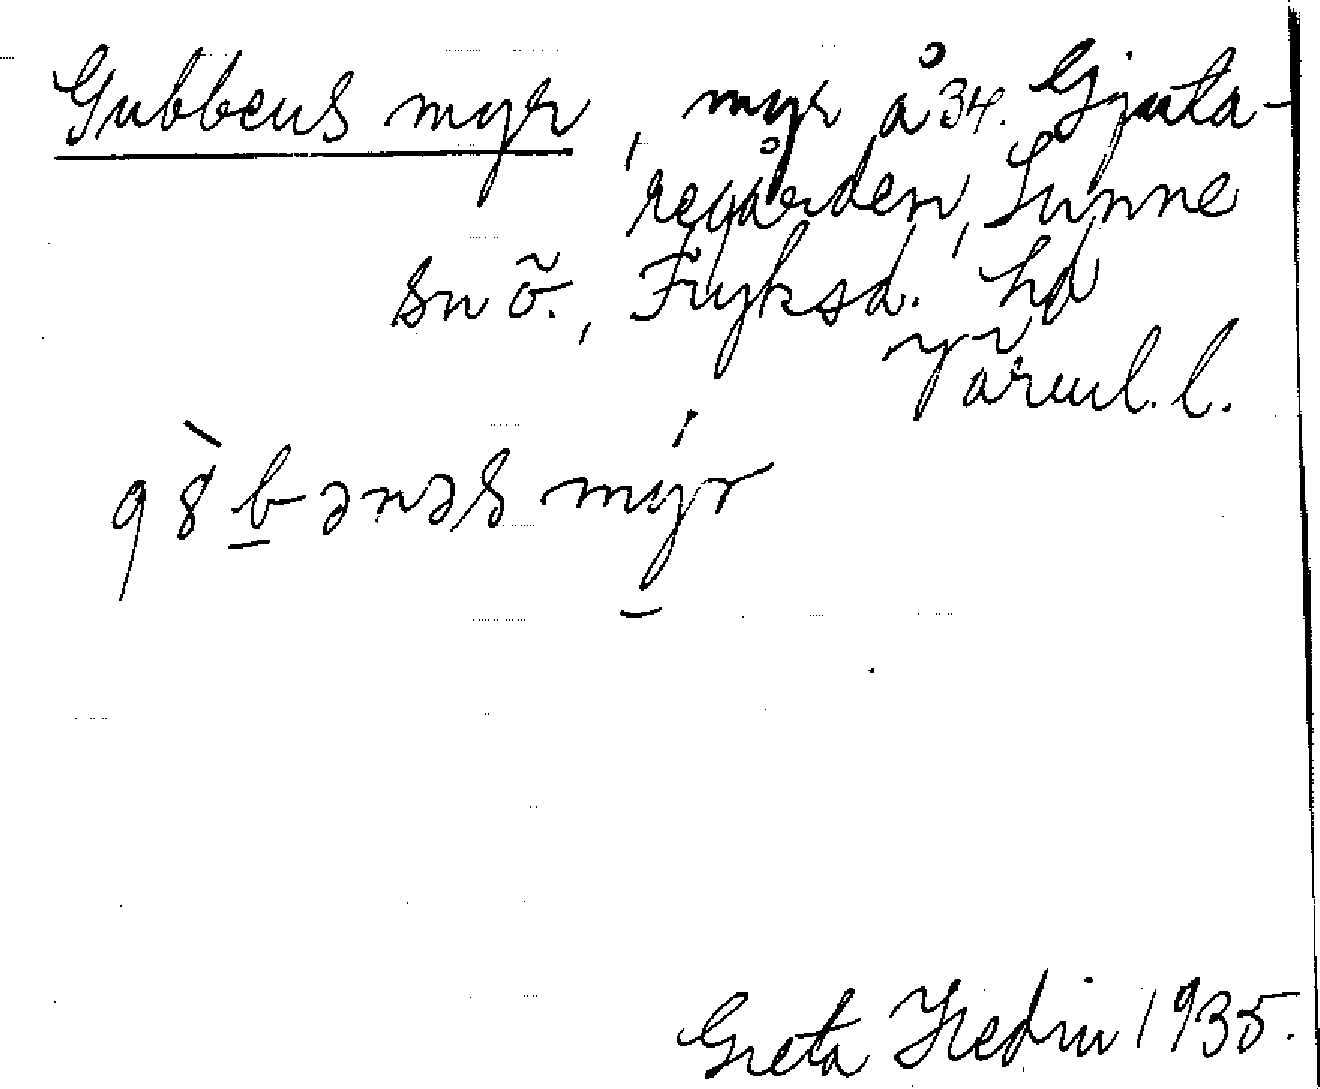 Gubbens myr, myr å 34. Gjuta-
regården, Sunne
sn ö., Fryksd. hd
Värml. l.
g8bənəs myr
Greta Hedin 1935.